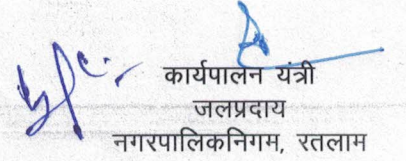 कार्यपालन यंत्री
जलप्रदाय
नगरपालिकनिगम, रतलाम